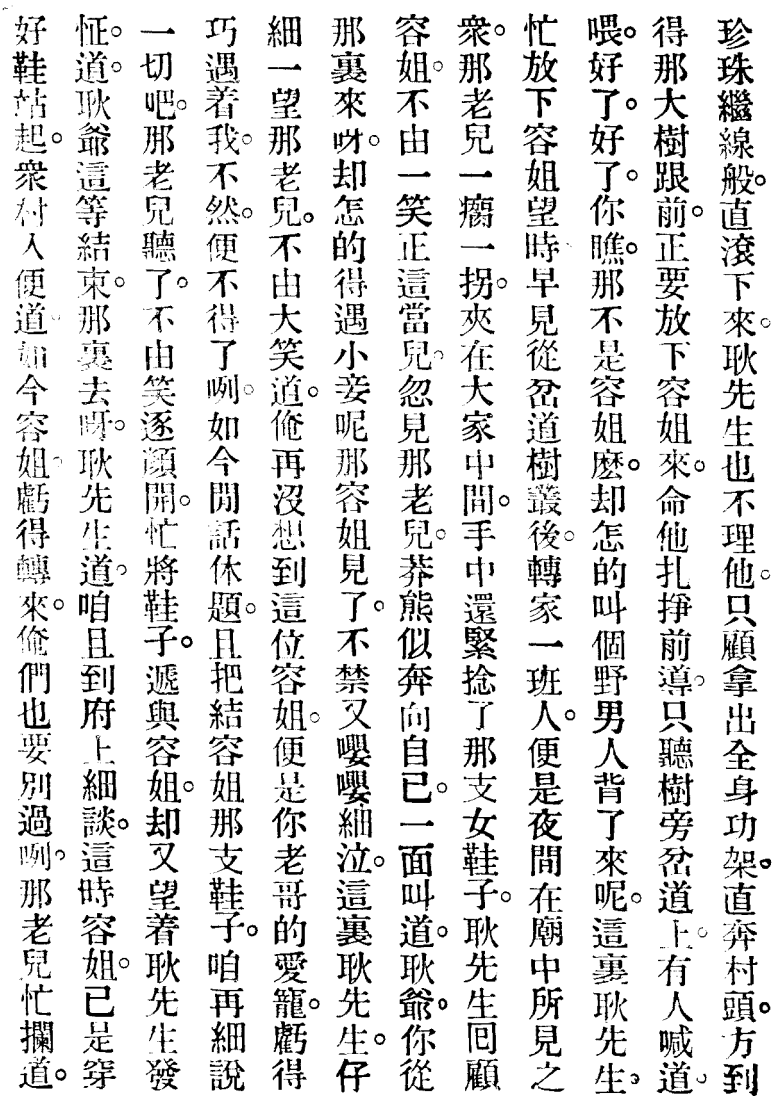 珍珠繼線般。直滾下來。耿先生也不理他。只顧拿出全身功架。直奔村頭。方到
得那大樹跟前。正要放下容姐來。命他扎掙前導。只聽樹旁岔道上。有人喊道。
喂。好了。好了。你瞧。那不是容姐麽。却怎的叫個野男人背了來呢。這裏耿先生。
忙放下容姐望時。早見從岔道樹叢後。轉家一班人。便是夜間在廟中所見之
衆。那老兒一瘸一拐。夾在大家中間。手中還緊捻了那支女鞋子。耿先生回顧
容姐。不由一笑。正這當兒。忽見那老兒。莽熊似奔向自已。一面叫道。耿爺。你從
那裏來呀。却怎的得遇小妾呢。那容姐見了。不禁又嚶嚶細泣。這裏耿先生。仔
細一望那老兒。不由大笑道。俺再沒想到這位容姐。便是你老哥的愛寵。虧得
巧遇着我。不然。便不得了咧。如今閒話休題。且把結容姐那支鞋子。咱再細說
一切吧。那老兒聽了。不由笑逐顏開。忙將鞋子。遞與容姐。却又望着耿先生發
怔。道。耿爺這等結束。那裏去呀。耿先生道。咱且到府上細談。這時容姐。已是穿
好鞋站起。衆村人便道。如今容姐。虧得轉來。俺們也要別過咧。那老兒忙攔道。